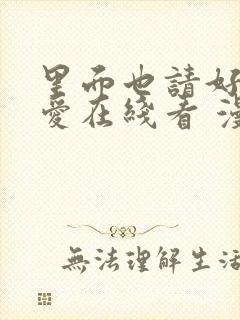 里而也請好
愛在綫看 漫
無法理解生活